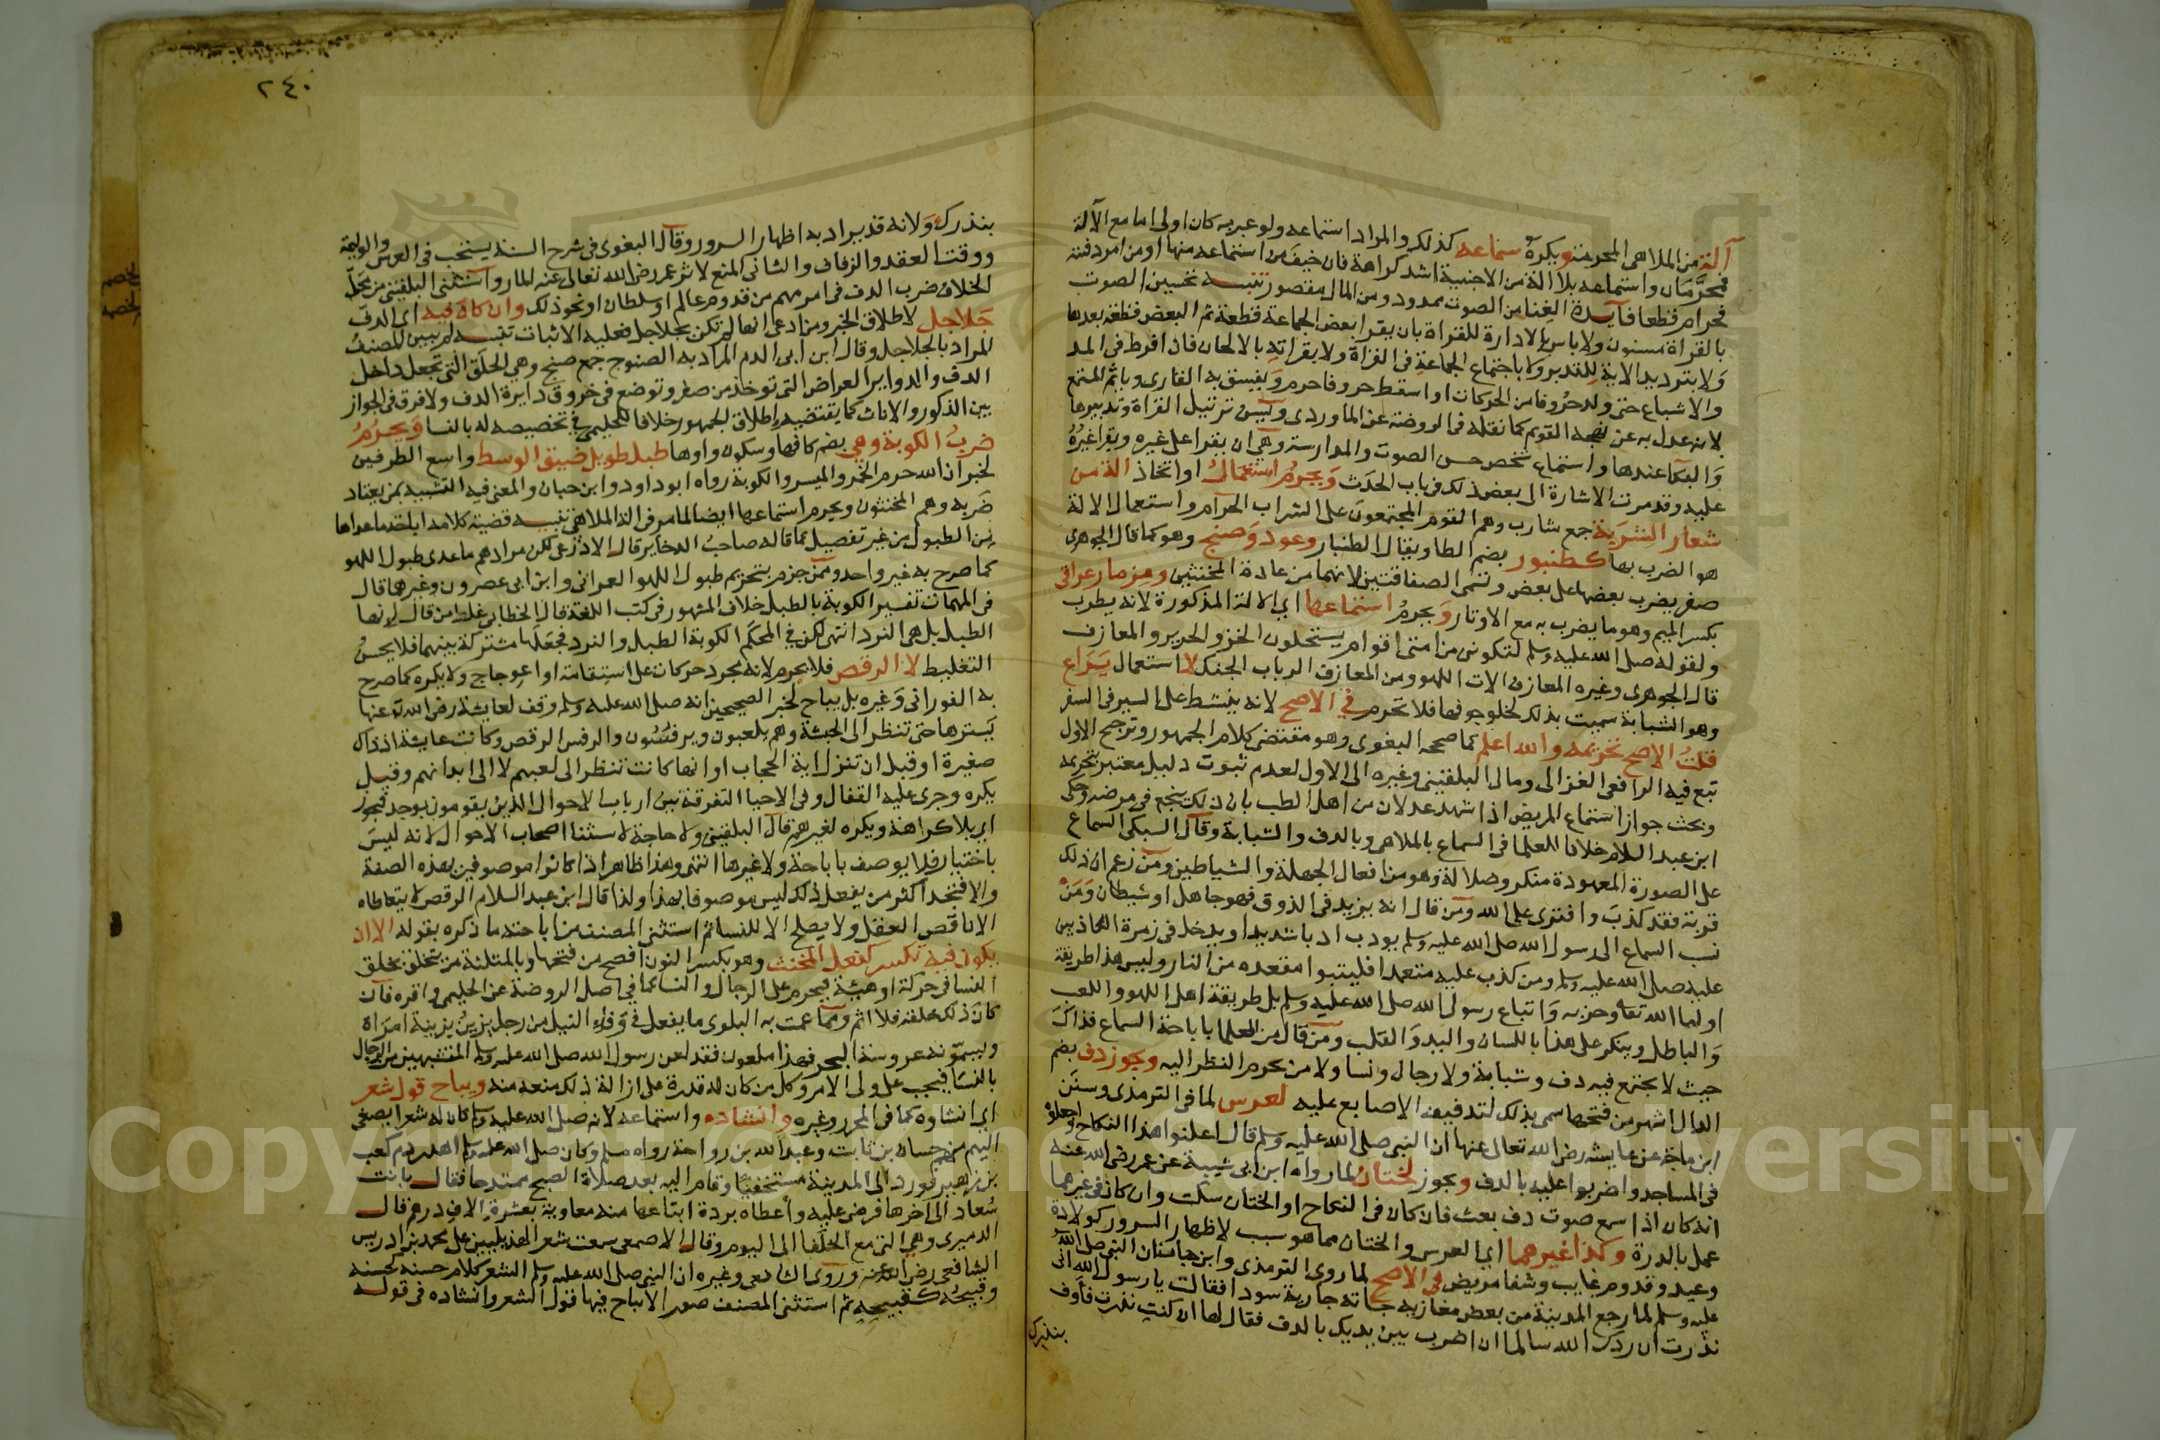 آلة من الملاهي المحرمة ويكره سماعه كذلك والمراد استماعه ولو عبر به كان اولى اما مع الآلة
فمحرّمان واستماعه بلا آلة من الاجنبية اشد كراهة فان خيف من استماعه منها او من امرد فتنة
فحرام قطعا فايدة الغنا من الصوت ممدود ومن المال مقصور تنبيه تحسين الصوت
بالقراة مسنون ولا باس بالادارة للقراة بان يقرا بعض الجماعة قطعة ثم البعض قطعة بعدها
ولا بترديد الاية للتدبر ولا باجتماع الجماعة في القراة ولا بقراته بالالحان فان افرط في المد
والاشباع حتى ولد حروفا من الحركات او اسقط حروفا حرم ويفسق به القارى وياثم المستمع
لانه عدل به عن نهجه القويم كما نقله في الروضة عن الماوردى ويسن ترتيل القراة وتدبيرها
والبكا عندها واستماع شخص حسن الصوت والمدارسة وهي ان يقرا على غيره ويقرا غيرُهُ
عليه وقد مرت الاشارة الى بعض ذلك في باب الحدَث ويحرمُ استعمالُ او اتخاذ الة من
شعار الشَرَبَة جمع شارب وهم القوم المجتمعون على الشراب الحرام واستعمال الالة
هو الضرب بها كطنبور بضم الطا ويقال الطنبار وعود وَصنج وهو كما قال الجوهرى
صفر يضرب بعضها على بعض وتسمى الصفاقتين لانهما من عادة المخنثين ومِزمار عراقى
بكسر الميم وهو ما يضرب به مع الاوتار وَيحرمُ استماعها اي الالة المذكورة لانه يطرب
ولقوله صلى الله عليه وسلم لتكونن من امتى اقوام يستحلون الخز والحرير والمعازف
قال الجوهرى وغيره المعازف الات اللهو ومن المعازف الرباب الجنك لا استعمال يَرَاع
وهو الشبابة سميت بذلك لخلو جوفها فلا تحرم في الاصح لانه ينشط على السير في السفر
قلتُ الاصح تحريمه والله اعلم كما صححه البغوى وهو مقتضى كلام الجمهور وترجيح الاول
تبع فيه الرافعى الغزالى ومال البلقينى وغيره الى الاول لعدم ثبوت دليل معتبر بتحريمه
وبحث جواز استماع المريض اذا شهد عدلان من اهل الطب بان ذلك ينجع في مرضه وحكى
ابن عبد السلام خلافا للعلما في السماع بالملاهى وبالدف والشبابة وقال السبكى السماع
على الصورة المعهودة منكر وضلالة وهو من افعال الجهلة والشياطين ومن زعم ان ذلك
قربة فقد كذبَ وافترى على الله ومن قال انه يزيد في الذوق فهو جاهل او شيطان وَمَنْ
نسب السماع الى رسول الله صلى الله عليه وسلم يودب ادبا شديدا ويدخل في زمرة الكاذبين
عليه صلى الله عليه وسلم ومن كذب عليه متعمدا فليتبوا مقعده من النار وليس هذا طريقة
اوليا الله تعا وحزبه وَاتباع رسول الله صلى الله عليه وسلم بل طريقة اهل اللهو واللعب
وَالباطل وينكر على هذا باللسان واليد وَالقلب ومن قال من العلما باباحة السماع فذاكَ
حيث لا يجتمع فيه دف وشبابة ولا رجال ونسا ولا من يحرم النظر اليه ويجوز دف بضم
الدال اشهر من فتحها سمى بذلك لتدفيف الاصابع عليه لعرس لما في الترمذى وسنن
ابن ماجة عن عايشه رضى الله تعالى عنها ان النبى صلى الله عليه وسلم قال اعلنوا هذا النكاح واجعلوه
في المساجد واضربوا عليه بالدف ويجوز لختان لما رواه ابن ابى شيبة عن عمر رضى الله عنه
انه كان اذا سمع صوت دف بعث فان كان في النكاح او الختان سكت وان كان في غيرهما
عمل بالدرة وكذا غيرهما اي العرس والختان مما هو سبب لاظهار السرور كولادة
وعيد وقدوم غايب وشفا مريض في الاصح لما روى الترمذى وابن حبان ان النبى صلى الله
عليه وسلم لما رجع المدينة من بعض مغازيه جاته جارية سودا فقالت يا رسول الله انى
نذرت ان ردك الله سالما ان اضرب بين يديك بالدف فقال لها ان كنت نذرت فأوف
بنذرك
٢٤٠
بنذرك وَلانه قد يراد به اظهار السرور وقال البغوى في شرح السنة يستحب في العرس والوليمة
ووقت العقد والزفاف والثانى المنع لاثر عمر رضى الله تعالى عنه المار واستثنى البلقينى من محلّ
الخلاف ضرب الدف في امر مهم من قدوم عالم او سلطان او نحو ذلك وان كان فيه اي الدف
جَلاجل لاطلاق الخبر ومن ادعى انها لم تكن بجلاجل فعليه الاثبات تنبيه لم يبين المصنف
المراد بالجلاجل وقال ابن ابى الدم المراد به الصنوج جمع صنج وهي الحلَق التى تجعل داخل
الدف والدواير العراض التى توخذ من صفر وتوضع في خروق دايرة الدف ولا فرق في الجواز
بين الذكور والاناث كما يقتضيه اطلاق الجمهور خلافا للحليمي في تخصيصه له بالنسا وَيحرُمُ
ضربُ الكوبة وهي بضم كافها وسكون واوها طبل طويل ضيق الوسط واسع الطرفين
لخبر ان الله حرم الخمر والميسر والكوبة رواه ابو داود وابن حبان والمعنى فيه التشبيه بمن يعتاد
ضربه وهم المخنثون ويحرم استماعها ايضا لما مر في الة الملاهي تنبيه قضية كلامه اباحة ما عداها
من الطبول من غير تفصيل كما قاله صاحبُ الدخاير قال الاذرعى لكن مرادهم ما عدى طبول اللهو
كما صرح به غير واحد وممن جزم بتحريم طبول اللهو العمرانى وابن ابى عصرون وغيرهما قال
في المهمات تفسير الكوبة بالطبل خلاف المشهور في كتب اللغة قال الخطابى غلط من قال انها
الطبل بل هي النرد انتهى لكن في المحكم الكوبة الطبل والنرد فجعلها مشتركة بينهما فلا يحسُنُ
التغليط لا الرقص فلا يحرم لانه مجرد حركات على استقامة او اعوجاج ولا يكره كما صرح
به الفورانى وَغيره بل يباح لخبر الصحيحين انه صلى الله عليه وسلم وقف لعايشة رضى الله تعا عنها
يَسترها حتى تنظر الى الحبشة وهم يلعبون ويرفثنون والرفس الرقص وكانت عايشة اذ ذاك
صغيرة او قبل ان تنزل اية الحجاب او انها كانت تنظر الى لعبهم لا الى ابدانهم وقيل
يكره وجرى عليه القفال وفي الاحيا التفرقة بين ارباب الاحوال الذين يقومون بوجد فيجوز
اي بلا كراهة ويكره لغيرهم قال البلقينى ولا حاجة لاستثنا اصحاب الاحوال لانه ليسَ
باختيار فلا يوصف باباحة ولا غيرها انتهى وهذا ظاهر اذا كانوا موصوفين بهذه الصفة
والا فتجد اكثر من يفعل ذلك ليس موصوفا بهذا ولذا قال ابن عبد السلام الرقص لا يتعاطاه
الا ناقص العقل ولا يصلح الا للنسا ثم استثنى المصنف من اباحته ما ذكره بقوله الا ان
يكون فيه تكسر كفعل المخنث وهو بكسر النون افصح من فتحها وبالمثلثة من يتخلق بخلق
النسا في حركة او هيئة فيحرم على الرجال والنسا كما في اصل الروضة عن الحليمى واقره فان
كان ذلك خلقة فلا اثم ومما عمت به البلوى ما يفعل في وَفاءِ النيل من رجل يزينُ بزينة امرأة
ويسمّونه عروسة البحر فهذا ملعون فقد لعن رسول الله صلى الله عليه وسلم المتشبهين من الرجال
بالنسا فيجب على ولى الامر وكل من كان له قدرة على ازالة ذلك منعه منه ويباح قول شعر
اي انشاوه كما في المحرر وغيره وانشاده واستماعه لانه صلى الله عليه وسلم كان له شعرا يصغى
اليهم منهم حسان بن ثابت وعبد الله بن رواحة رواه مسلم وكان صلى الله عليه وسلم اهدر دم كعب
بن زهير فورد الى المدينة مستخفيًا وقام اليه بعد صلاة الصبح ممتدحا فقال بانت
سُعاد الى اخرها فرضى عليه وأعطاه بردة ابتاعها منه معاوية بعشرة الاف درهم قال
الدميرى وهي التى مع الخلفا الى اليوم وقال الاصمعى سمعت شعر الهذيليين على محمد بن ادريس
الشافعى رضى الله عنه وروى الشافعى وغيره ان النبى صلى الله عليه وسلم الشعر كلام حسنه كحسنه
وقبيحُه كقبيحِهِ ثم استثنى المصنف صورا لا يباح فيها قول الشعر وانشاده في قوله
Copyright © King Saud University